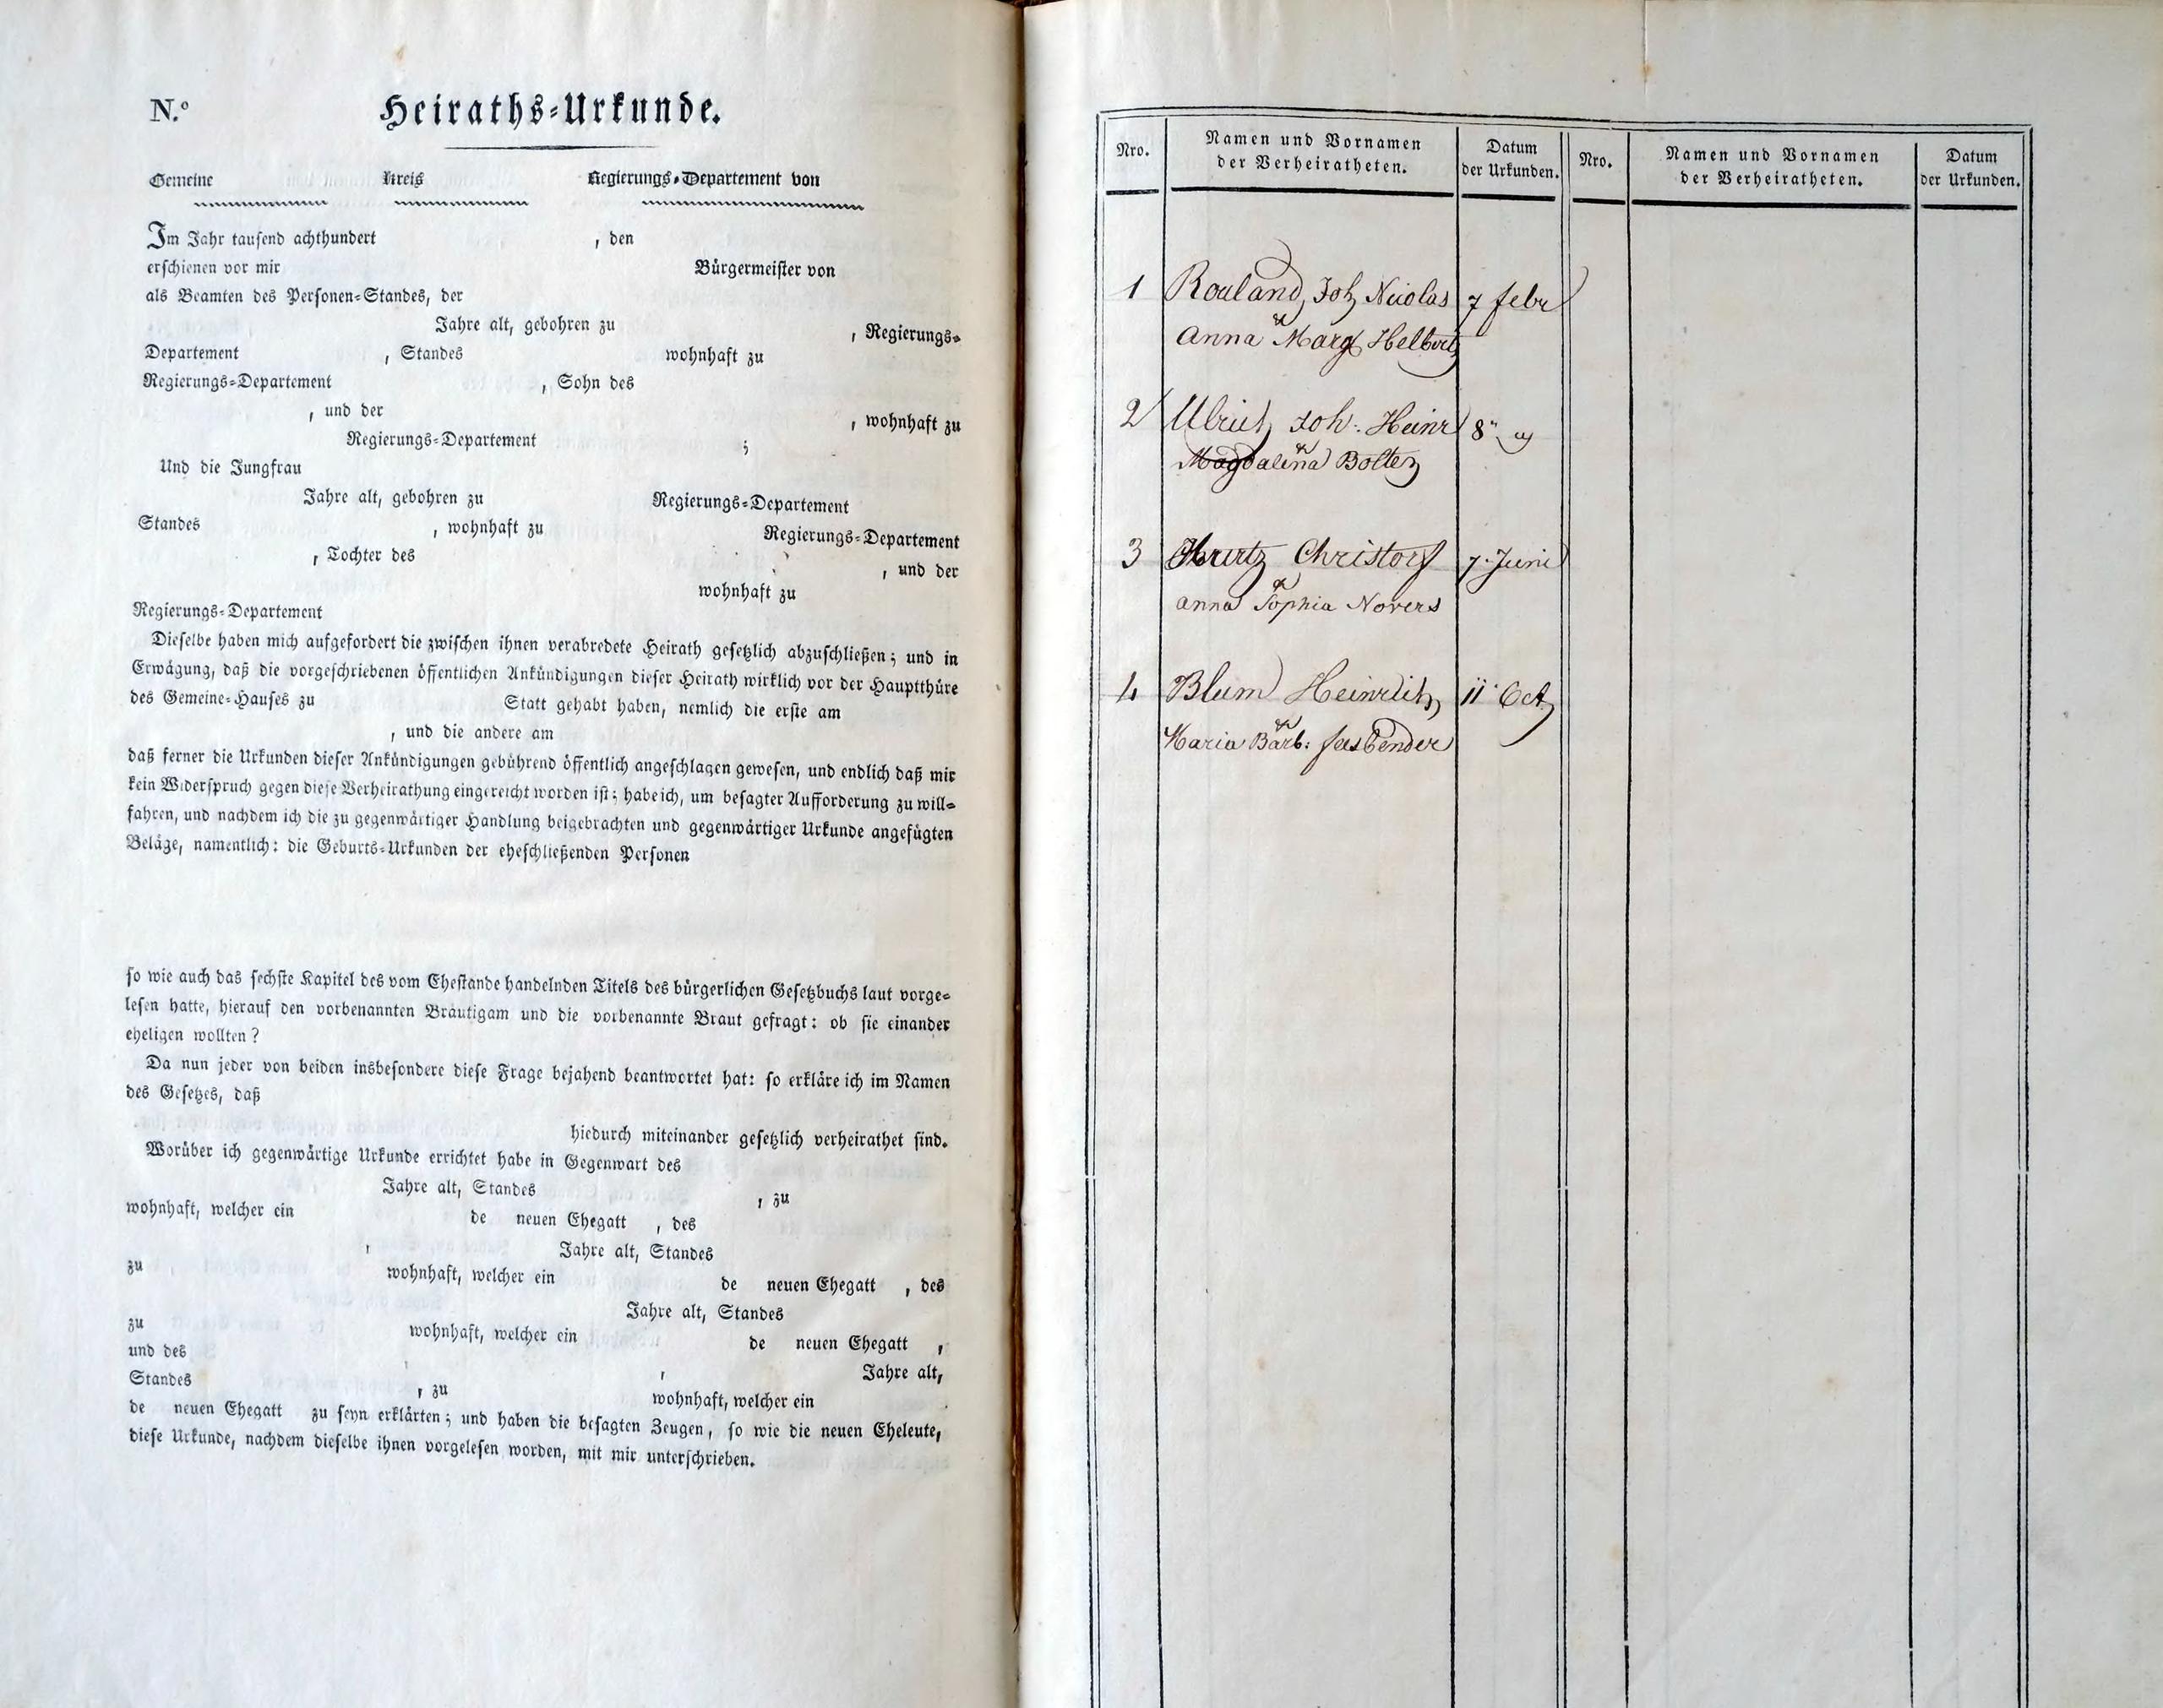 N.º Heiraths-Urkunde.
Gemeine Kreis Regierungs-Departement von
Im Jahr tausend achthundert , den
erschienen vor mir Bürgermeister von
als Beamten des Personen-Standes, der
Jahre alt, gebohren zu , Regierungs-
Departement , Standes wohnhaft zu
Regierungs-Departement , Sohn des
, und der , wohnhaft zu
Regierungs-Departement ;
Und die Jungfrau
Jahre alt, gebohren zu Regierungs-Departement
Standes , wohnhaft zu Regierungs-Departement
, Tochter des , und der
wohnhaft zu
Regierungs-Departement
Dieselbe haben mich aufgefordert die zwischen ihnen verabredete Heirath gesetzlich abzuschließen; und in
Erwägung, daß die vorgeschriebenen öffentlichen Ankündigungen dieser Heirath wirklich vor der Hauptthüre
des Gemeine-Hauses zu Statt gehabt haben, nemlich die erste am
, und die andere am
daß ferner die Urkunden dieser Ankündigungen gebührend öffentlich angeschlagen gewesen, und endlich daß mir
kein Widerspruch gegen diese Verheirathung eingereicht worden ist; habe ich, um besagter Aufforderung zu will-
fahren, und nachdem ich die zu gegenwärtiger Handlung beigebrachten und gegenwärtiger Urkunde angefügten
Beläge, namentlich: die Geburts-Urkunden der eheschließenden Personen
so wie auch das sechste Kapitel des vom Ehestande handelnden Titels des bürgerlichen Gesetzbuchs laut vorge-
lesen hatte, hierauf den vorbenannten Bräutigam und die vorbenannte Braut gefragt: ob sie einander
eheligen wollten?
Da nun jeder von beiden insbesondere diese Frage bejahend beantwortet hat: so erkläre ich im Namen
des Gesetzes, daß
hiedurch miteinander gesetzlich verheirathet sind.
Worüber ich gegenwärtige Urkunde errichtet habe in Gegenwart des
Jahre alt, Standes , zu
wohnhaft, welcher ein de neuen Ehegatt , des
, Jahre alt, Standes
zu wohnhaft, welcher ein de neuen Ehegatt , des
Jahre alt, Standes
zu wohnhaft, welcher ein de neuen Ehegatt ,
und des , Jahre alt,
Standes , zu wohnhaft, welcher ein
de neuen Ehegatt zu seyn erklärten; und haben die besagten Zeugen, so wie die neuen Eheleute,
diese Urkunde, nachdem dieselbe ihnen vorgelesen worden, mit mir unterschrieben.
Nro. Namen und Vornamen der Verheiratheten. Datum der Urkunden. Nro. Namen und Vornamen der Verheiratheten. Datum der Urkunden.
1 Rouland, Joh Nicolas 7 febr
&
Anna Marg Helbertz
2 Ulrich Joh. Heinr 8"
&
Magdalena Boltez
3 Christorf 7. Juni
&
Anna Sophia Novers
4 Blum Heinrich 11 Oct
&
Maria Barb: fasbender